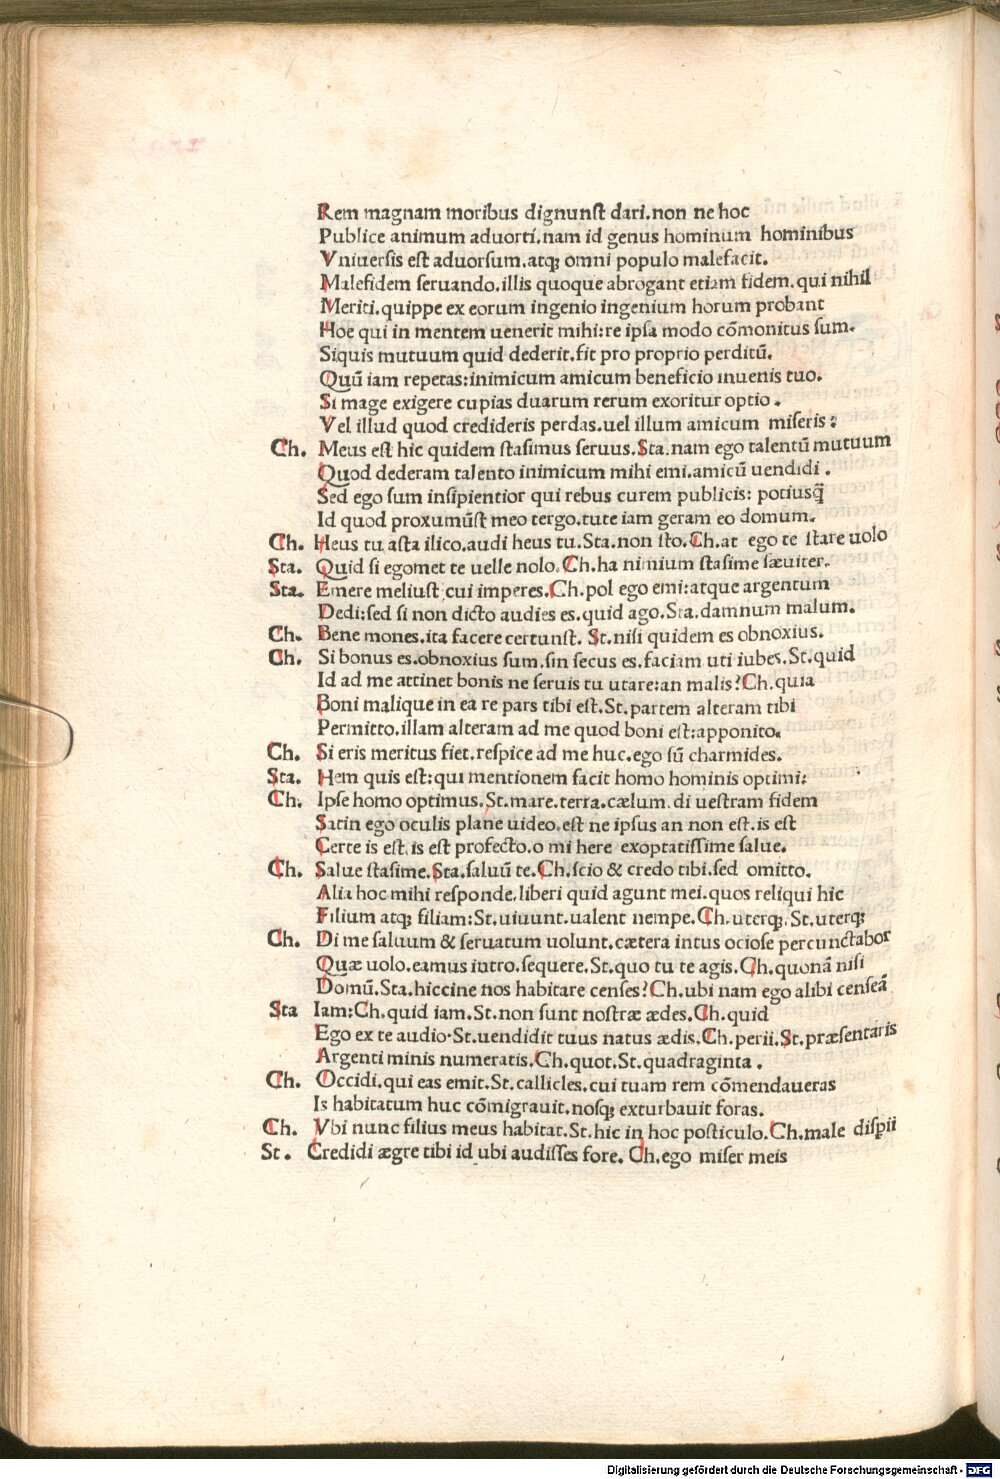 Rem magnam moribus dignunſt dari.non ne hoc
Publice animum aduorti.nam id genus hominum hominibus
Vniuerſis eſt aduorſum.atqꝫ omni populo malefacit.
Malefidem ſeruando.illis quoque abrogant etiam fidem.qui nihil
Meriti.quippe ex eorum ingenio ingenium horum probant
Hoc qui in mentem uenerit mihi:re ipſa modo cōmonitus ſum.
Siquis mutuum quid dederit.fit pro proprio perditū.
Quū iam repetas:inimicum amicum beneficio inuenis tuo.
Si mage exigere cupias duarum rerum exoritur optio.
Vel illud quod credideris perdas.uel illum amicum miſeris:
Ch. Meus eſt hic quidem ſtaſimus ſeruus.Sta.nam ego talentū mutuum
Quod dederam talento inimicum mihi emi.amicū uendidi.
Sed ego ſum inſipientior qui rebus curem publicis: potiusq̄
Id quod proxumūſt meo tergo.tute iam geram eo domum.
Ch. Heus tu aſta ilico.audi heus tu.Sta.non ſto.Ch.at ego te ſtare uolo
Sta. Quid ſi egomet te uelle nolo.Ch.ha nimium ſtaſime ſæuiter.
Sta. Emere meliuſt cui imperes.Ch.pol ego emi:atque argentum
Dedi:ſed ſi non dicto audies es.quid ago.Sta.damnum malum.
Ch. Bene mones.ita facere certunſt. St.niſi quidem es obnoxius.
Ch. Si bonus es.obnoxius ſum.ſin ſecus es.faciam uti iubes.St.quid
Id ad me attinet bonis ne ſeruis tu utare:an malis?Ch.quia
Boni malique in ea re pars tibi eſt.St.partem alteram tibi
Permitto.illam alteram ad me quod boni eſt:apponito.
Ch. Si eris meritus fiet.reſpice ad me huc.ego ſū charmides.
Sta. Hem quis eſt:qui mentionem facit homo hominis optimi:
Ch. Ipſe homo optimus.St.mare.terra.cælum.di ueſtram fidem
Satin ego oculis plane uideo.eſt ne ipſus an non eſt.is eſt
Certe is eſt.is eſt profecto.o mi here exoptatiſſime ſalue.
Ch. Salue ſtaſime.Sta.ſaluū te.Ch.ſcio & credo tibi.ſed omitto.
Alia hoc mihi reſponde.liberi quid agunt mei.quos reliqui hic
Filium atqꝫ filiam:St.uiuunt.ualent nempe.Ch.uterqꝫ.St.uterqꝫ
Ch. Di me ſaluum & ſeruatum uolunt.cætera intus ocioſe percunctabor
Quæ uolo.eamus intro.ſequere.St.quo tu te agis.Ch.quonā niſi
Domū.Sta.hiccine nos habitare cenſes?Ch.ubi nam ego alibi cenſeā
Sta Iam:Ch.quid iam.St.non ſunt noſtræ ædes.Ch.quid
Ego ex te audio.St.uendidit tuus natus ædis.Ch.perii.St.præſentaris
Argenti minis numeratis.Ch.quot.St.quadraginta.
Ch. Occidi.qui eas emit.St.callicles.cui tuam rem cōmendaueras
Is habitatum huc cōmigrauit.noſqꝫ exturbauit foras.
Ch. Vbi nunc filius meus habitat.St.hic in hoc poſticulo.Ch.male diſpii
St. Credidi ægre tibi id ubi audiſſes fore. Ch.ego miſer meis
Digitalisierung gefördert durch die Deutsche Forschungsgemeinschaft - DFG